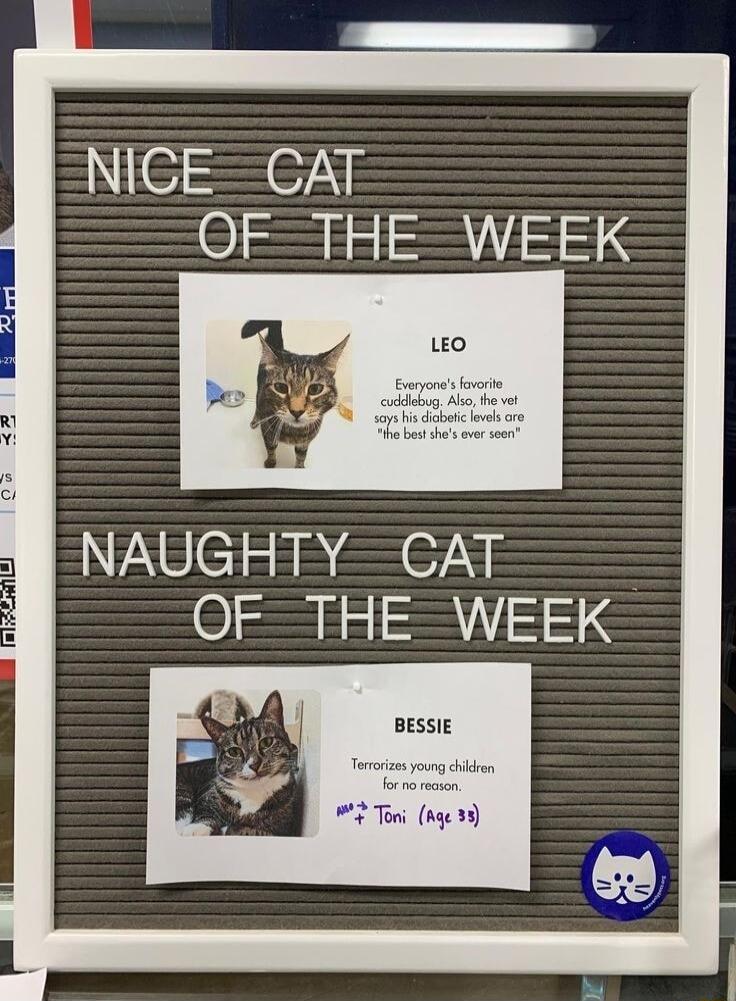 NICE CAT
OF THE WEEK
LEO
Everyone's favorite
cuddlebug. Also, the vet
says his diabetic levels are
"the best she's ever seen"
NAUGHTY CAT
OF THE WEEK
BESSIE
Terrorizes young children
for no reason.
Also →
+ Toni (Age 33)